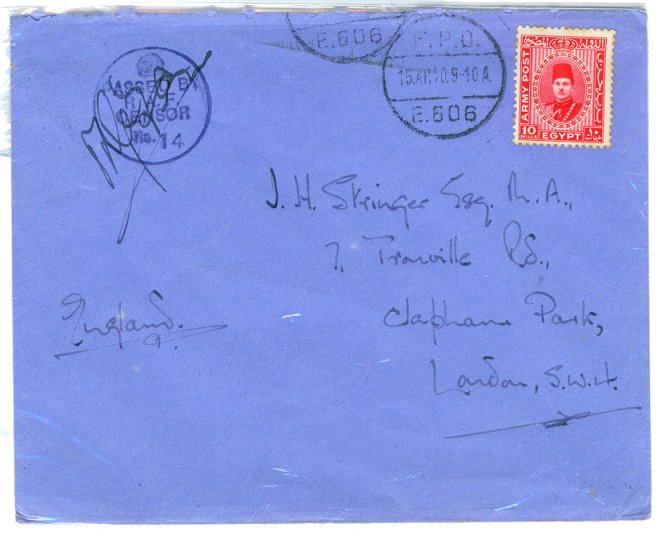 E.606
E.P.O.
15.AP.40.9-10A.
E.606
ARMY POST
10
MILLS
EGYPT
PASSED BY
R.A.F.
CENSOR
No. 14
J. H. Stringer Esq. M.A.,
7, Tronville Rd.,
Claphane Park,
London, S.W.4.
England.